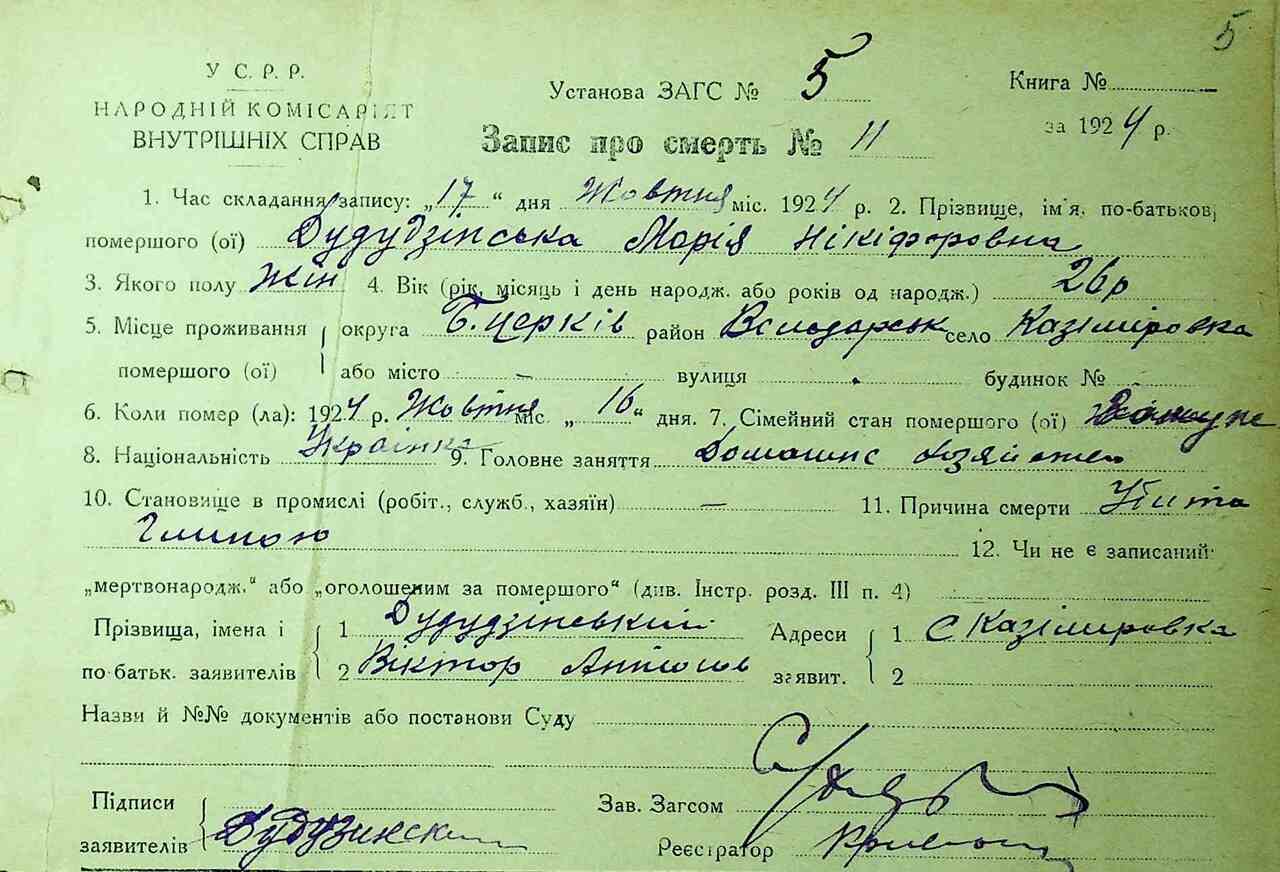 5
У С. Р. Р.
НАРОДНІЙ КОМІСАРІЯТ
ВНУТРІШНІХ СПРАВ
Установа ЗАГС № 5
Книга №
за 1924 р.
Запис про смерть № 11
1. Час складання запису: „17" дня Жовтня міс. 1924 р. 2. Прізвище, ім'я, по-батькові
помершого (ої) Дудудзінська Марія Нікіфоровна
3. Якого полу жін 4. Вік (рік, місяць і день народж. або років од народж.) 26р
5. Місце проживання округа Б.Церків район Володарськ село Казіміровка
помершого (ої) або місто – вулиця будинок №
6. Коли помер (ла): 1924 р. Жовтня міс. „16" дня. 7. Сімейний стан помершого (ої)
8. Національність Українка 9. Головне заняття Домашнє
10. Становище в промислі (робіт., служб., хазяїн) — 11. Причина смерти Убита
Глиною 12. Чи не є записаний:
„мертвонародж." або „оголошеним за помершого" (див. Інстр. розд. III п. 4)
Прізвища, імена і 1 Дудудзінський Адреси 1 С Казіміровка
по-батьк. заявителів 2 Віктор заявит. 2
Назви й №№ документів або постанови Суду
Підписи Зав. Загсом
заявителів Реєстратор